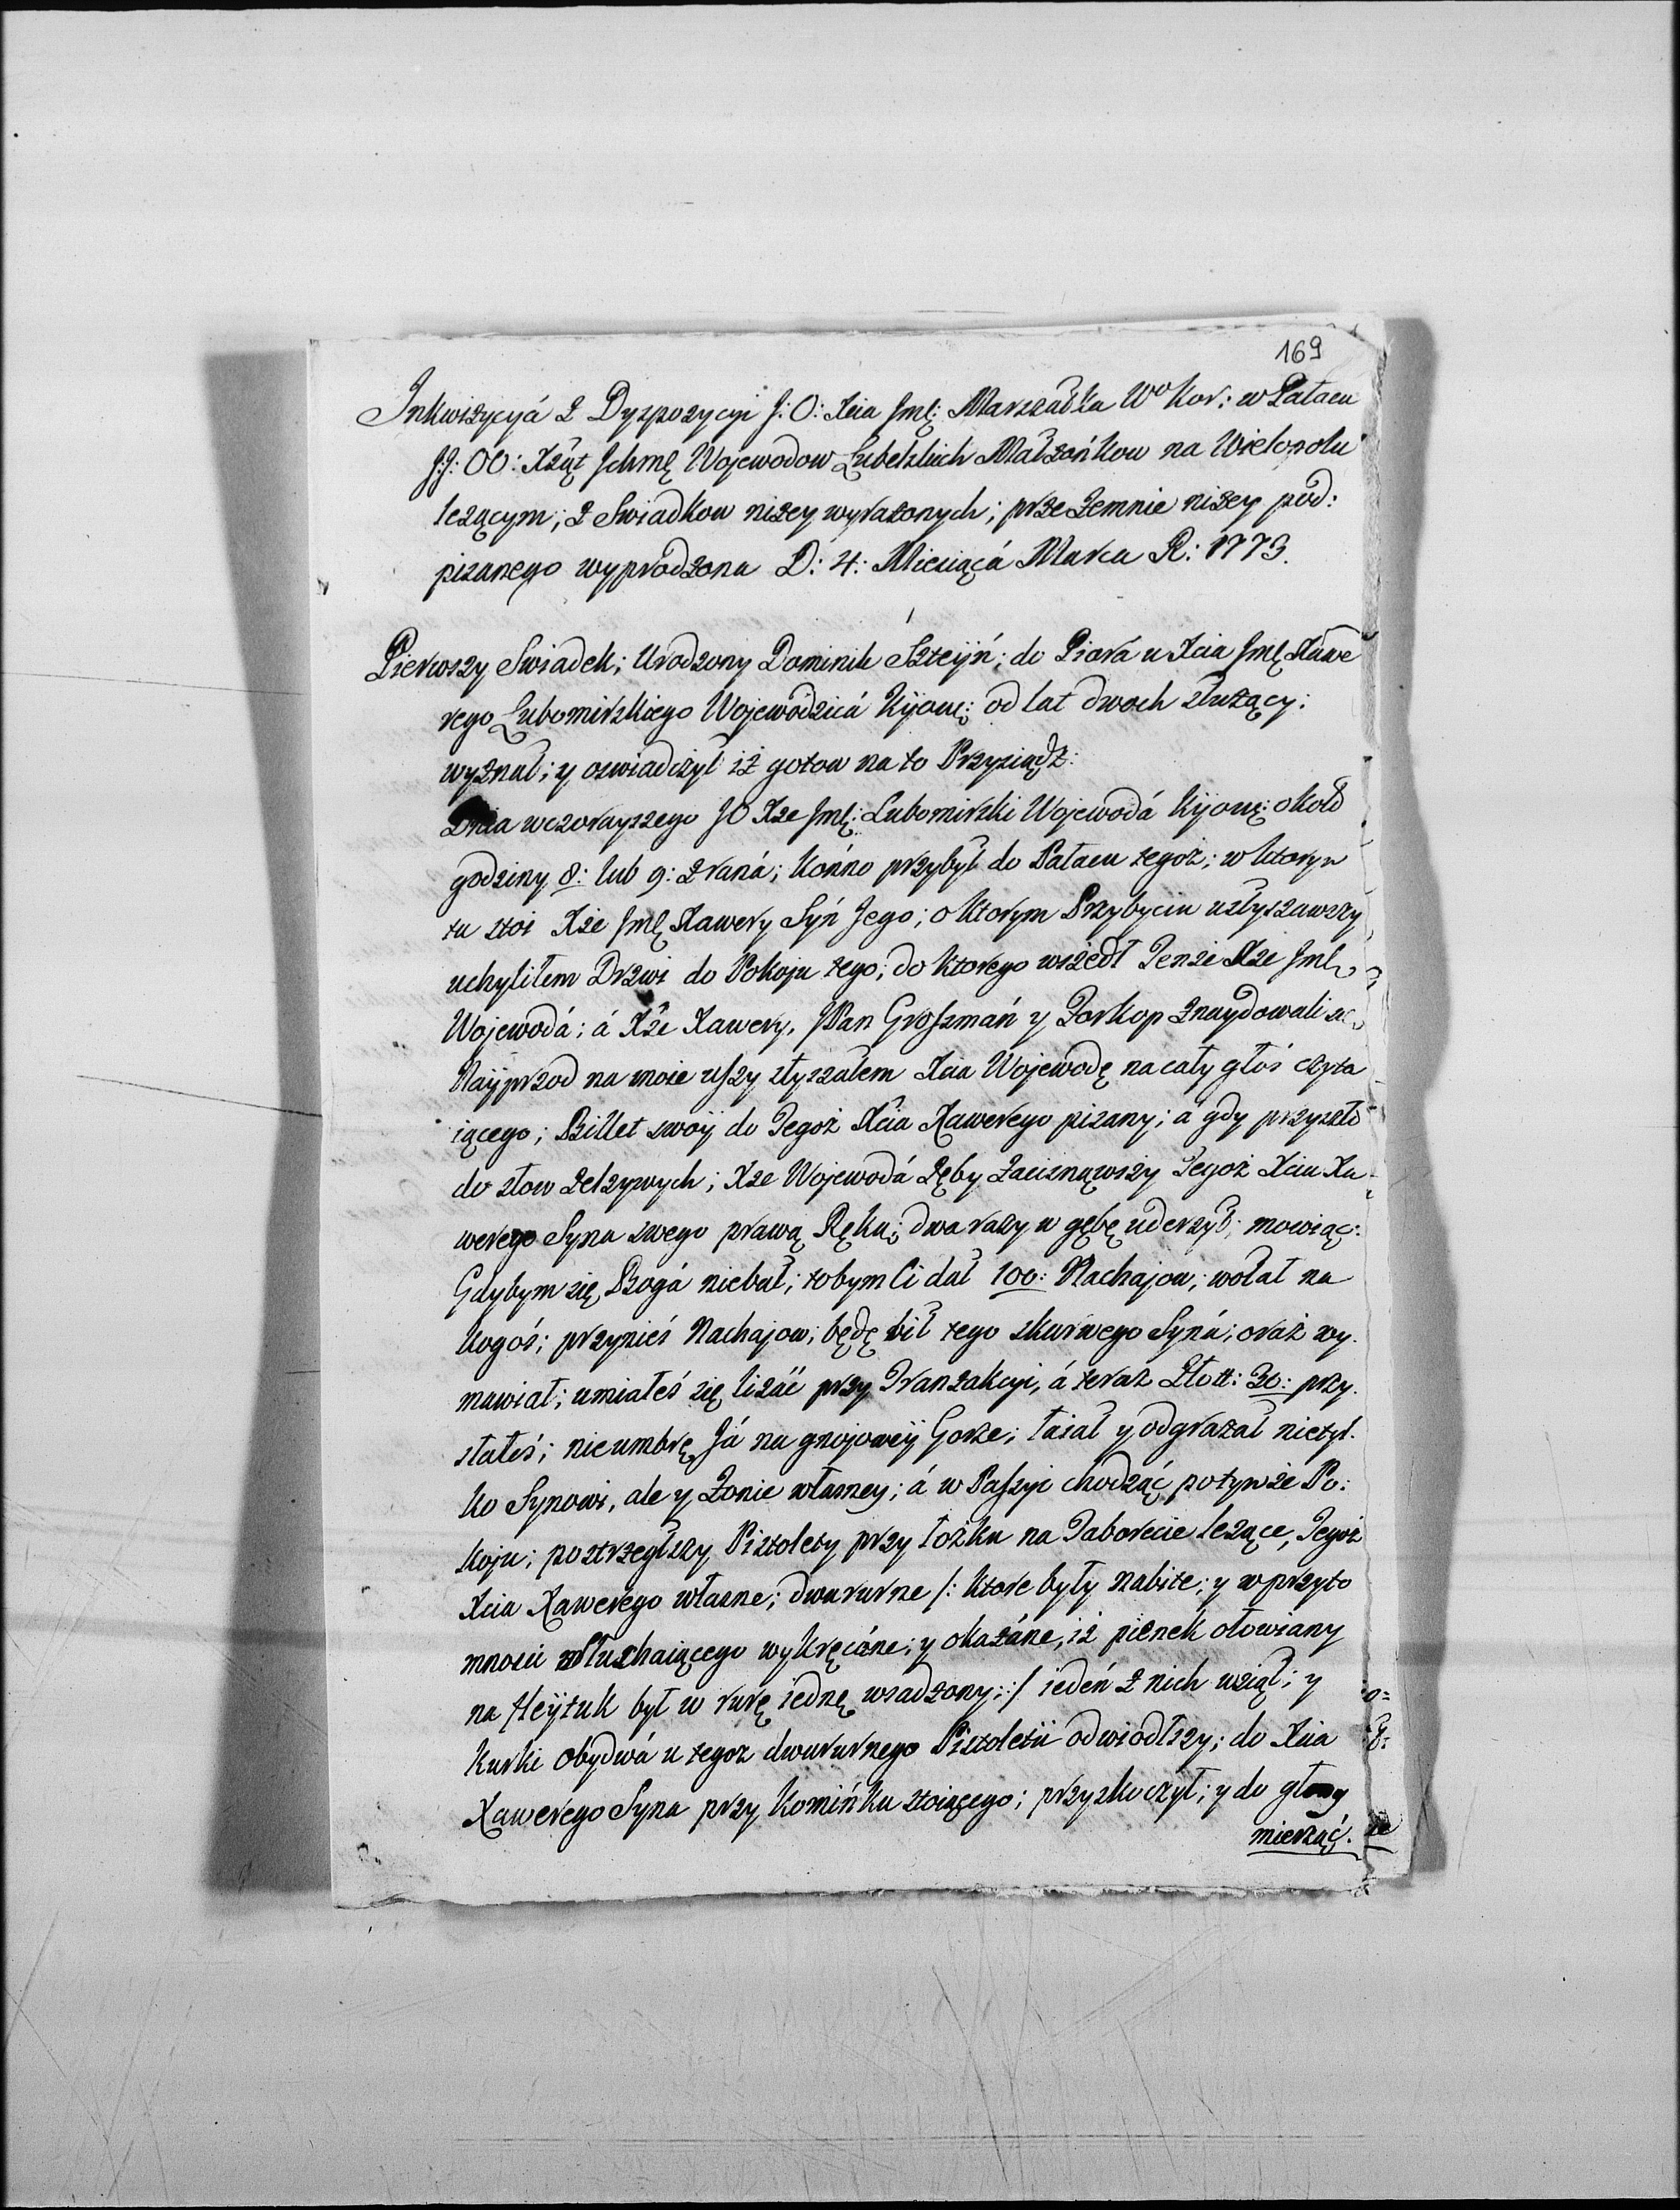 169
Inkwizycyá z Dyspozycyi J: O: Xcia Jmę: Marszałka Wo Kor: w Pałacu
JJ: OO: Xżąt Jchmę Wojewodow Lubelskich Małżońkow na Wielopolu
leżącym; z Swiadkow niżey wyrażonych; przezemnie niżey pod:
pisanego wyprodzona D: 4: Miesiącá Marca R: 1773.
Pierwszy Swiadek; Urodzony Dominik Szteyń; do Piorá u Xcia Jmę Xawe
rego Lubomirskiego Wojewodzicá Kijow: od lat dwoch służący;
wyznał; y oswiadczył iż gotow na to Przysiądz:
Dnia wczorayszego JO Xże Jmę: Lubomirski Wojewodá Kijow: około
godziny 8: lub 9: z raná; konno przybył do Pałacu tegoż; w ktorym
tu stoi Xże Jmę Xawery Syń Jego; o ktorym Przybyciu usłyszawszy
uchyliłem Drzwi do Pokoju tego; do ktorego wszedł Tenże Xże Jmę
Wojewodá; á Xże Xawery, JPan Groszmań y Forkop znaydowali się
Nayprzod na moie uszy słyszałem Xcia Wojewodę na cały głos czyta
iącego; Billet swoy do Tegoż Xcia Xawerego pisany; a gdy przyszło
do słow zelżywych; Xże Wojewodá Zęby zacisnąwszy Tegoż Xcia Xa
werego Syna swego prawą Ręką; dwa razy w gębę uderzył; mowiąc:
Gdybym się Bogá niebał; tobym Ci dał 100: Nachajow; wołał na
kogoś; przynieś Nachajow; będę bił tego skurwego Syná; oraz wy
mawiał; umiałeś się lizáć przy Tranzakcyi, á teraz Złott: 30: przy
stałeś; nieumbrę Já na gnojowey Gorze; łaiał y odgrażał nietyl
ko Synowi, ale y Zonie własney; á w Passyi chodząć po tymże Po:
koju; postrzegłszy Pistolety przy łożku na Taborecie leżące, Tegoż
Xcia Xawerego własne; dwururne /: ktore były nabite; y w przyto
mnosci słuchaiącego wykręcone; y okazáne, iż pienek ołowiany
na Heytuk był w rurę iednę wsadzony; :/ iedeń z nich wziął; y
kurki obydwá u tegoż dwururnego Pistoletu odwiodłszy; do Xcia
Xawerego Syna przy Kominku stoiącego; przyskoczył; y do głowy
mierząć.